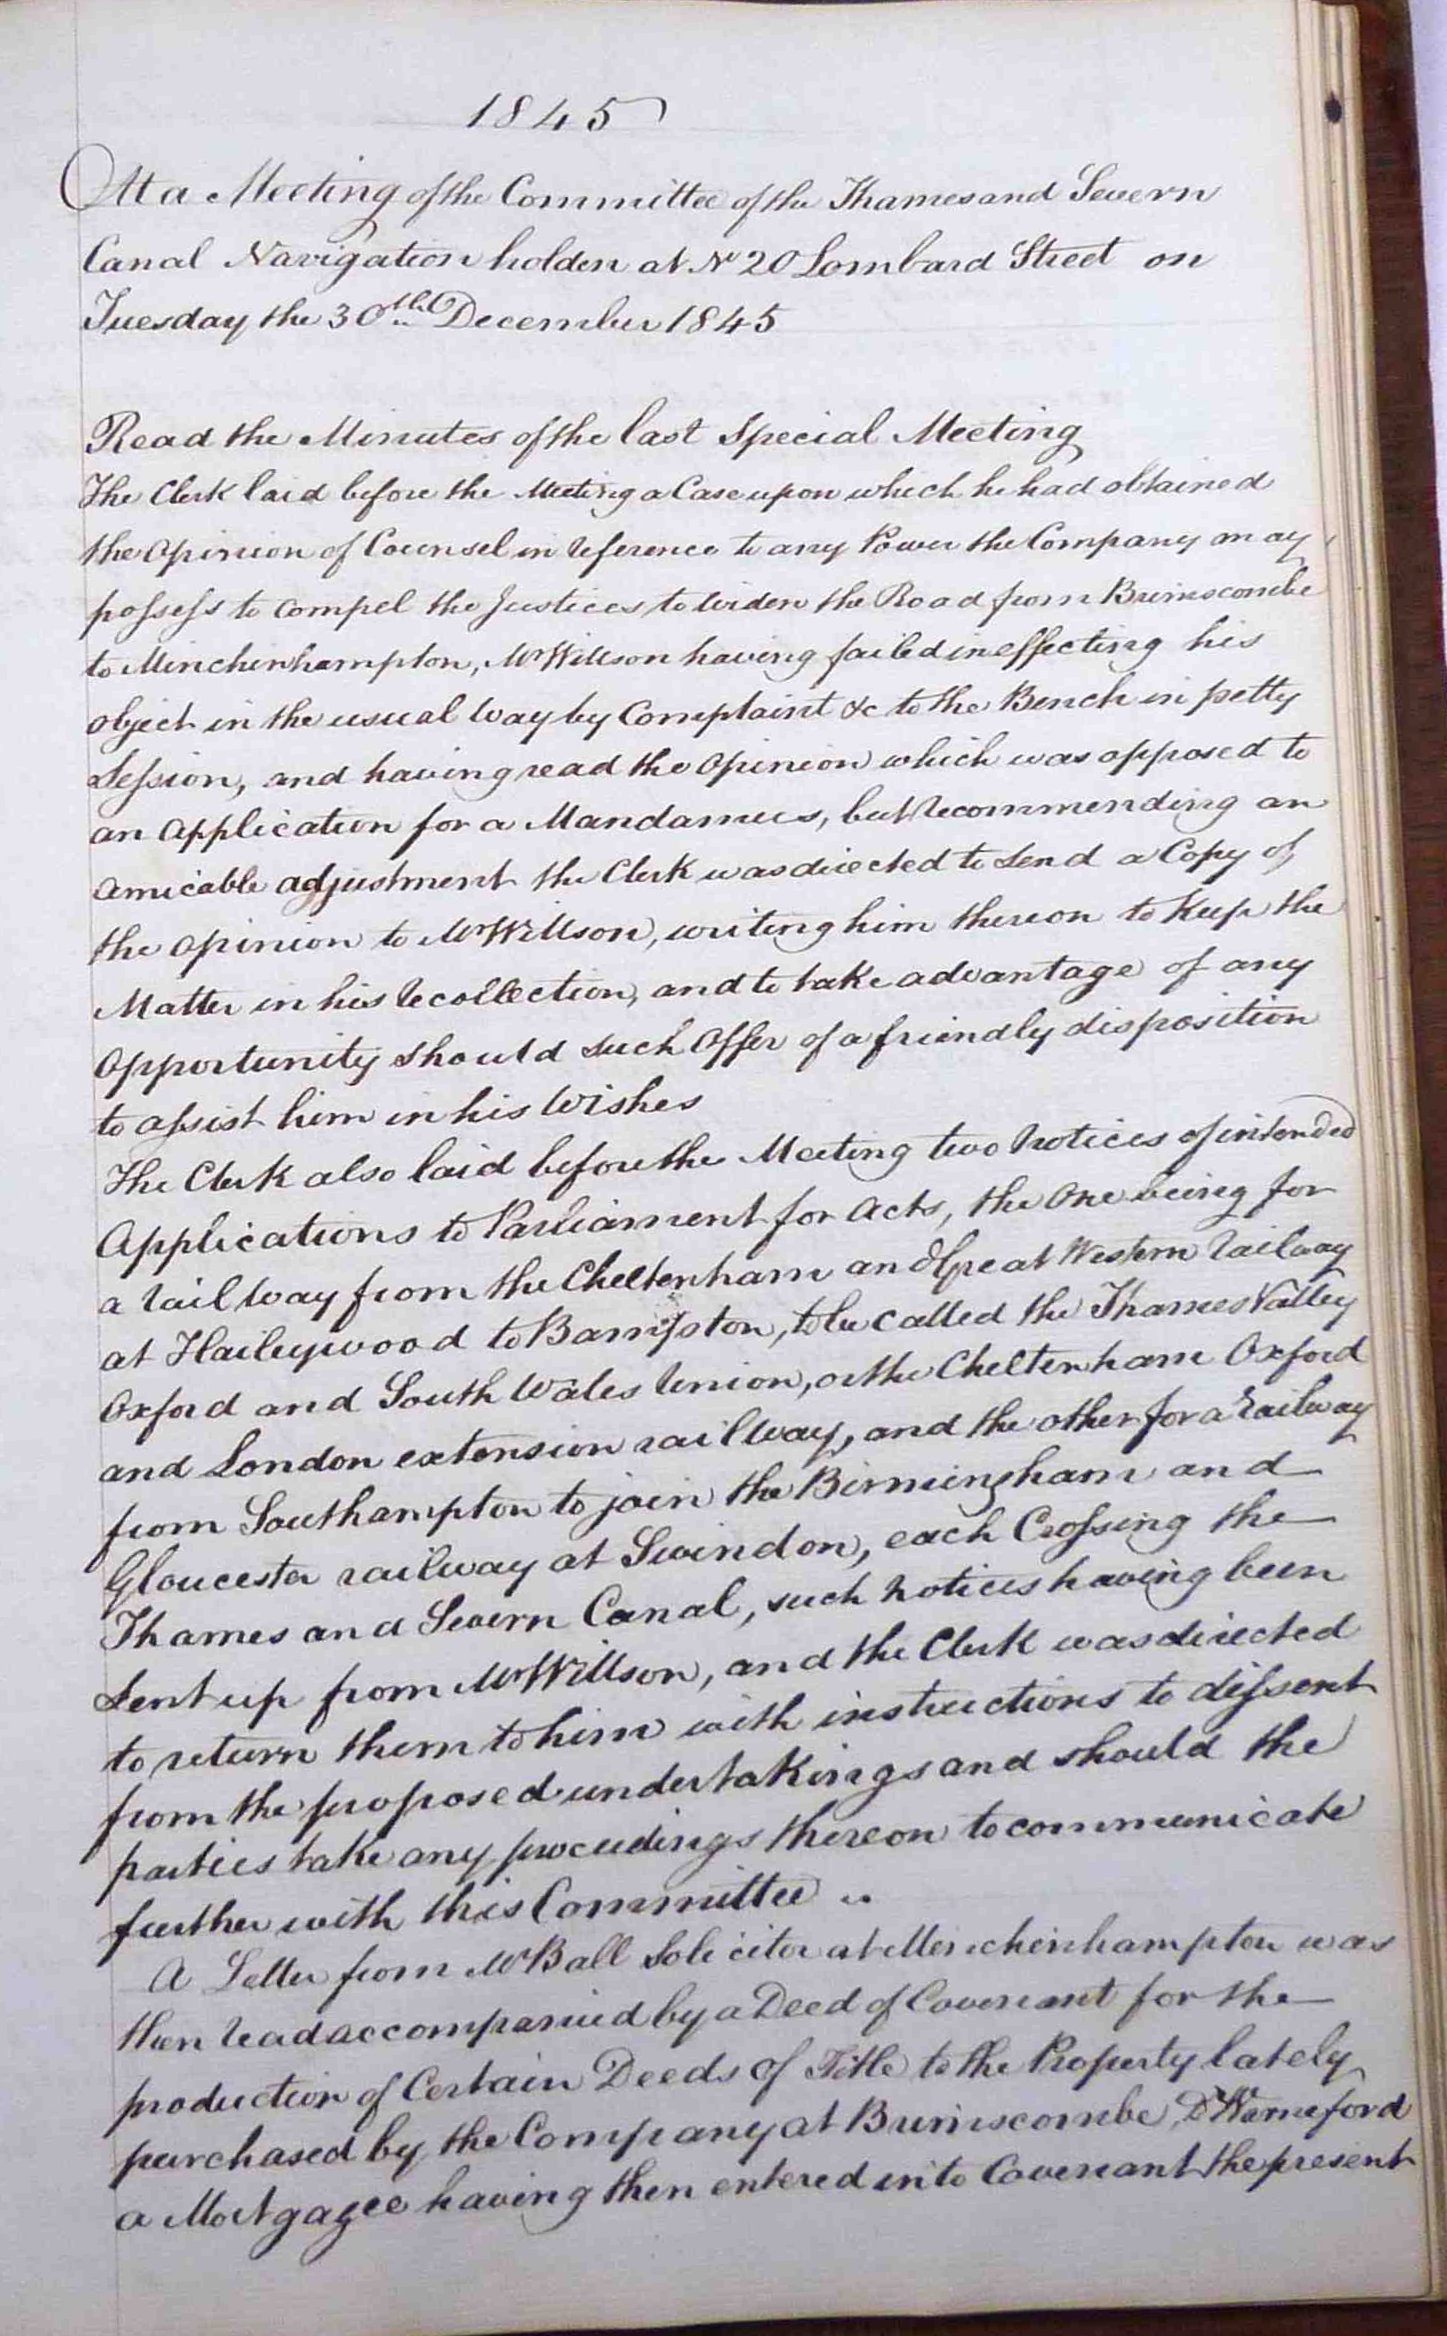 1845
At a Meeting of the Committee of the Thames and Severn
Canal Navigation holden at No 20 Lombard Street on
Tuesday the 30th December 1845
Read the Minutes of the last Special Meeting
The Clerk laid before the Meeting a Case upon which he had obtained
the Opinion of Counsel in reference to any Power the Company may
possess to compel the Justices to widen the Road from Brimscombe
to Minchinhampton, Mr Willson having failed in effecting his
object in the usual way by Complaint &c to the Bench in petty
Session, and having read the Opinion which was opposed to
an Application for a Mandamus, but recommending an
amicable adjustment the Clerk was directed to send a Copy of
the Opinion to Mr Willson, writing him thereon to keep the
Matter in his recollection, and to take advantage of any
Opportunity should such Offer of a friendly disposition
to assist him in his Wishes
The Clerk also laid before the Meeting two Notices of intended
Applications to Parliament for Acts, the One being for
a railway from the Cheltenham and Great Western railway
at Haileywood to Bampton, to be called the Thames Valley
Oxford and South Wales Union, or the Cheltenham Oxford
and London extension railway, and the other for a railway
from Southampton to join the Birmingham and
Gloucester railway at Swindon, each Crossing the
Thames and Severn Canal, such notices having been
sent up from Mr Willson, and the Clerk was directed
to return them to him with instructions to dissent
from the proposed undertakings and should the
parties take any proceedings thereon to communicate
further with this Committee
A Letter from Mr Ball Solicitor at Minchinhampton was
then read accompanied by a Deed of Covenant for the
production of Certain Deeds of Title to the Property lately
purchased by the Company at Brimscombe, Dr Warneford
a Mortgagee having then entered into Covenant the present